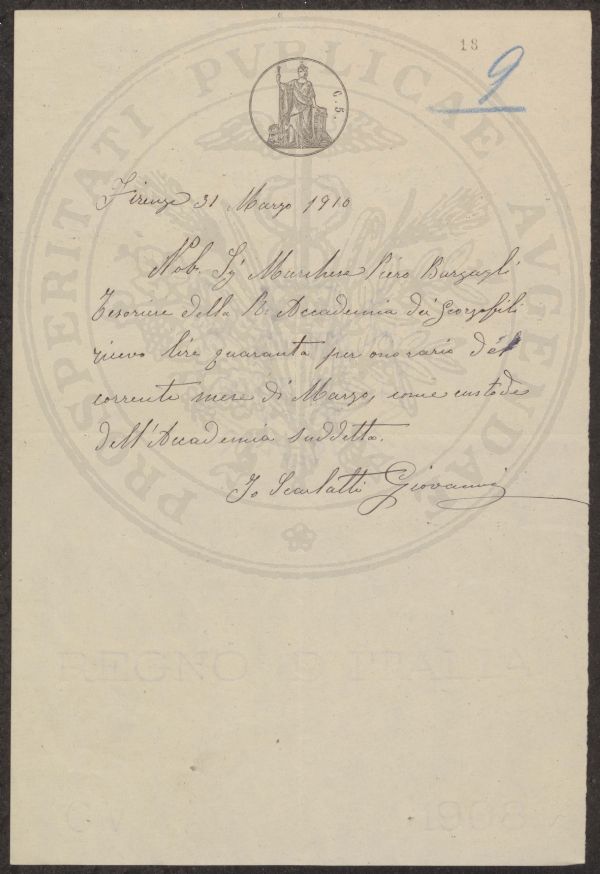 18
9
C. 5.
PROSPERITATI PVBLICAE AVGENDAE
Firenze 31 Marzo 1910
Nob. Sig Marchese Piero Bargagli
Tesoriere della R. Accademia dei Georgofili
ricevo lire quaranta per onorario del
corrente mese di Marzo, come custode
dell'Accademia suddetta.
Io Scarlatti Giovanni
REGNO D'ITALIA
1908